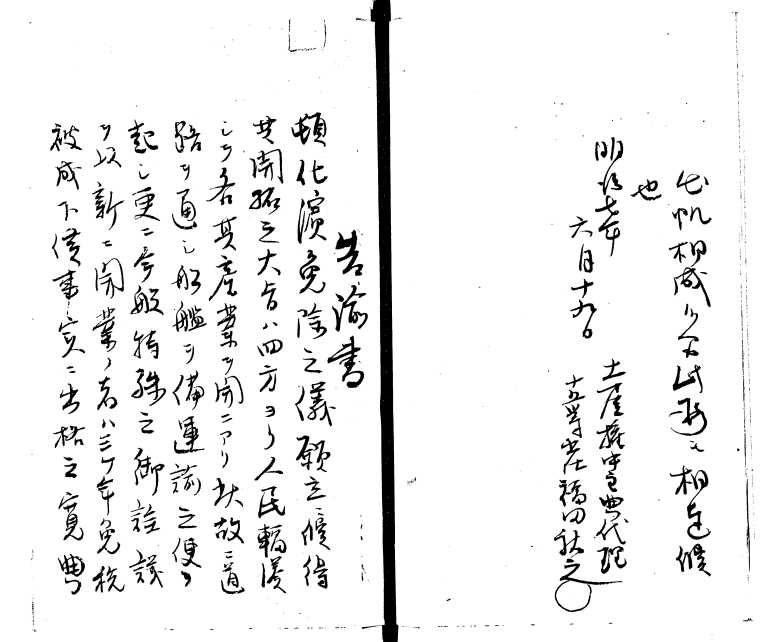 出帆相成候分此段相達候
也
明治七年
六月十九日
土屋権中主典代理
十五等出仕福田秋之
告諭書
頓化濱免除之儀願立候得
共開拓之大旨ハ四方ヨリ人民輻湊
シテ各其産業ヲ開ニアリ故ニ道
路ヲ通シ船艦ヲ備運諭之便ヲ
起シ更ニ今般特殊之御詮議
ヲ以新ニ開業ノ者ハ三ケ年免税
被成下候事実ニ出格之寛典